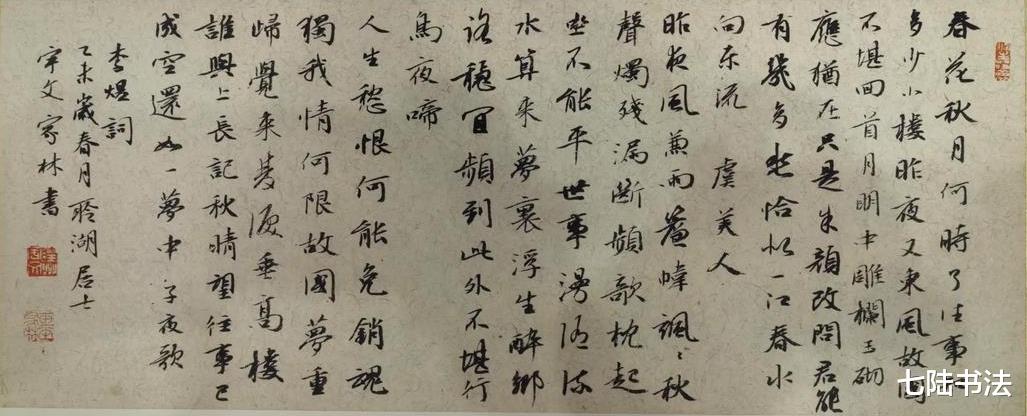 春花秋月何時了往事知
多少小樓昨夜又東風故國
不堪回首月明中雕欄玉砌
應猶在只是朱顏改問君能
有幾多愁恰似一江春水
向东流 虞美人
昨夜風兼雨簾幃颯颯秋
聲燭殘漏斷頻欹枕起
坐不能平世事漫随流
水算来夢裏浮生醉鄉
路穩宜頻到此外不堪行
烏夜啼
人生愁恨何能免銷魂
獨我情何限故國夢重
歸覺来雙淚垂高樓
誰與上長記秋晴望往事已
成空還如一夢中 子夜歌
李煜詞
乙未歲春月聆湖居士
宇文家林書
七陆书法